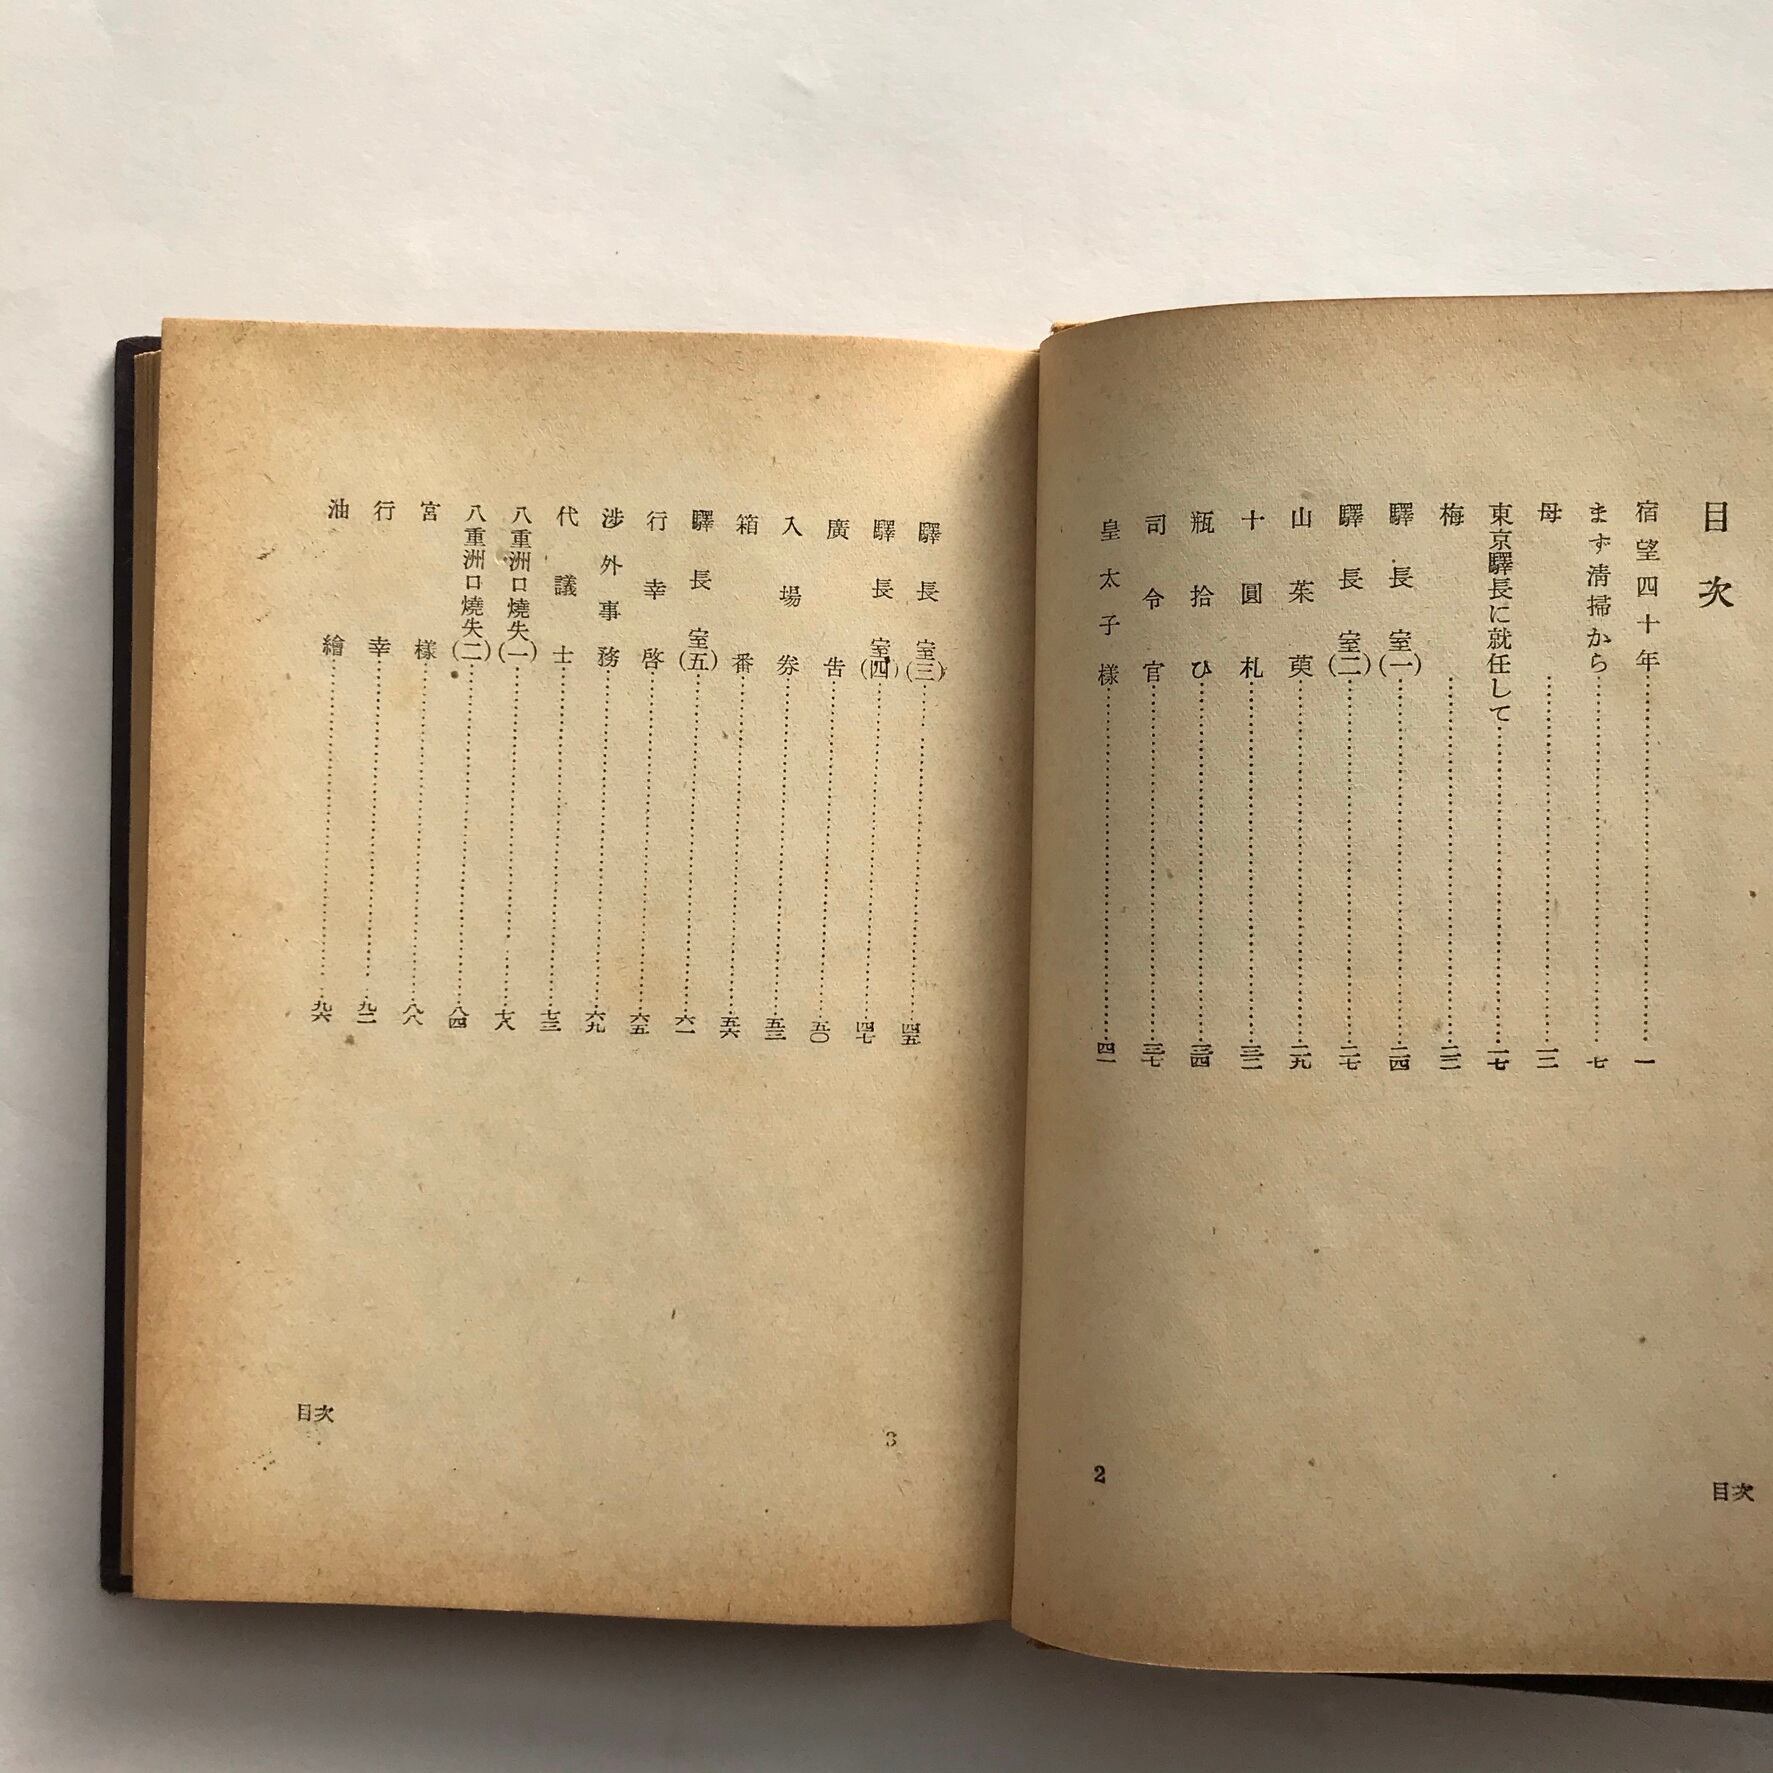 目次
宿望四十年……一
まず淸掃から……七
母……一二
東京驛長に就任して……一七
梅……二二
驛長室(一)……二四
驛長室(二)……二七
山茱萸……二九
十圓札……三二
瓶拾ひ……三四
司令官……三七
皇太子樣……四一
2
目次
驛長室(三)……四五
驛長室(四)……四七
廣告……五〇
入場券……五三
箱番……五六
驛長室(五)……六一
行幸啓……六五
涉外事務……六九
代議士……七三
八重洲口燒失(一)……七八
八重洲口燒失(二)……八四
宮樣……八八
行幸……九二
油繪……九六
3
目次